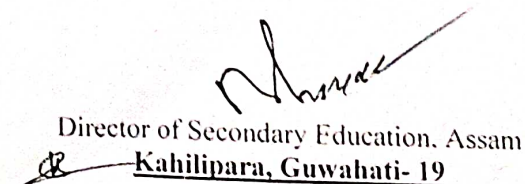 Director of Secondary Education. Assam
Kahilipara, Guwahati- 19